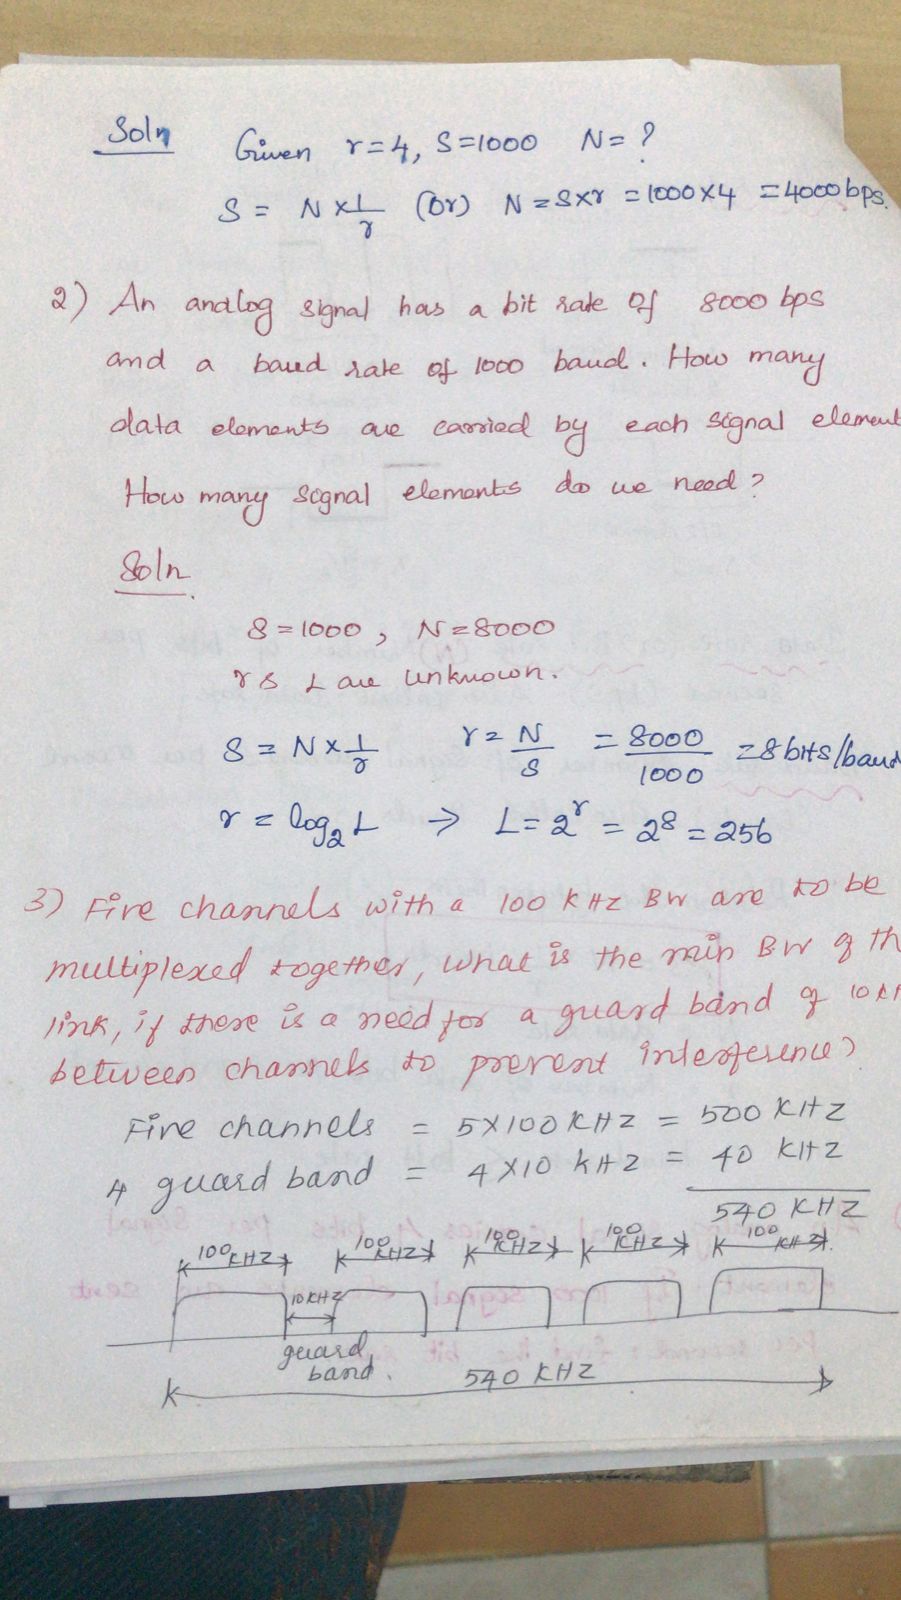 Soln Given r=4, S=1000 N=?
S = N × 1/r (or) N = S×r = 1000×4 = 4000 bps.
2) An analog signal has a bit rate of 8000 bps
and a baud rate of 1000 baud. How many
data elements are carried by each signal element
How many signal elements do we need?
Soln.
S=1000, N=8000
r & L are unknown.
S = N × 1/r r = N/S = 8000/1000 = 8 bits/baud
r = log₂L → L = 2^r = 2^8 = 256
3) Five channels with a 100 KHZ BW are to be
multiplexed together, what is the min BW of th
link, if there is a need for a guard band of 10
between channels to prevent interference?
Five channels = 5×100 KHZ = 500 KHZ
4 guard band = 4×10 KHZ = 40 KHZ
540 KHZ
100 KHZ 100 KHZ 100 KHZ 100 KHZ 100 KHZ
10 KHZ
guard
band.
540 KHZ